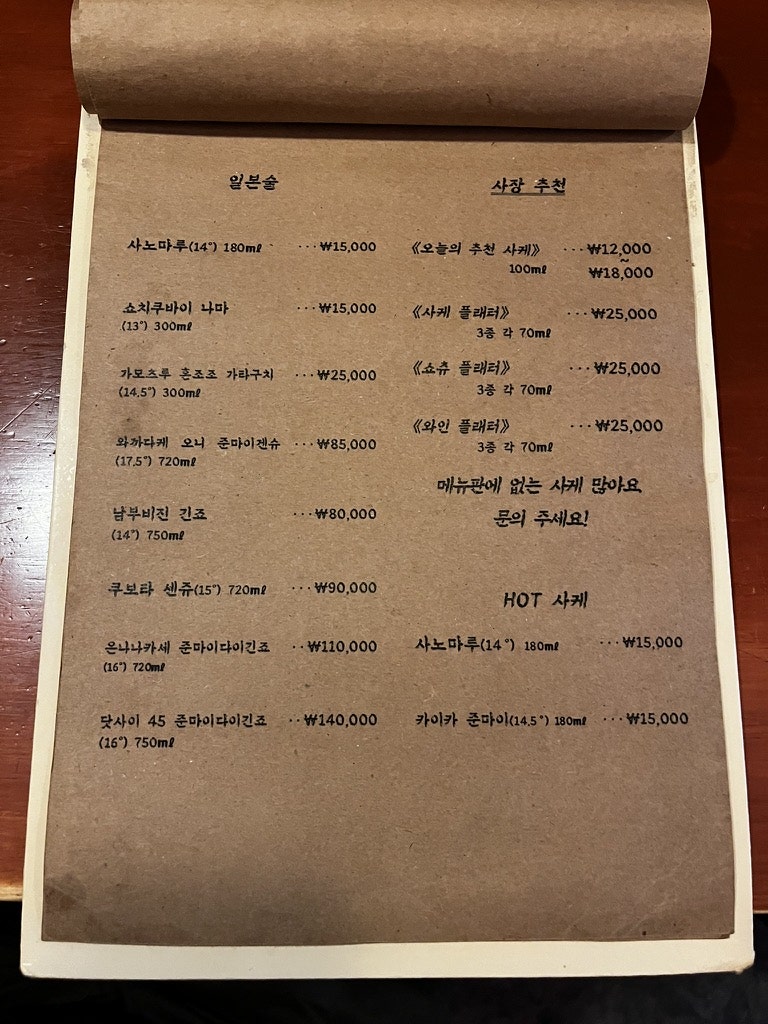 일본술
사노마루(14°) 180㎖ ···₩15,000
쇼치쿠바이 나마 ···₩15,000
(13°) 300㎖
가모츠루 혼조조 가타구치 ···₩25,000
(14.5°) 300㎖
와까다케 오니 준마이겐슈 ···₩85,000
(17.5°) 720㎖
남부비진 긴죠 ···₩80,000
(14°) 750㎖
쿠보타 센쥬(15°) 720㎖ ···₩90,000
온나나카세 준마이다이긴죠 ··₩110,000
(16°) 720㎖
닷사이 45 준마이다이긴죠 ··₩140,000
(16°) 750㎖
사장 추천
《오늘의 추천 사케》 ···₩12,000
~
100㎖ ₩18,000
《사케 플래터》 ···₩25,000
3종 각 70㎖
《쇼츄 플래터》 ···₩25,000
3종 각 70㎖
《와인 플래터》 ···₩25,000
3종 각 70㎖
메뉴판에 없는 사케 많아요
문의 주세요!
HOT 사케
사노마루(14°) 180㎖ ···₩15,000
카이카 준마이(14.5°) 180㎖ ···₩15,000